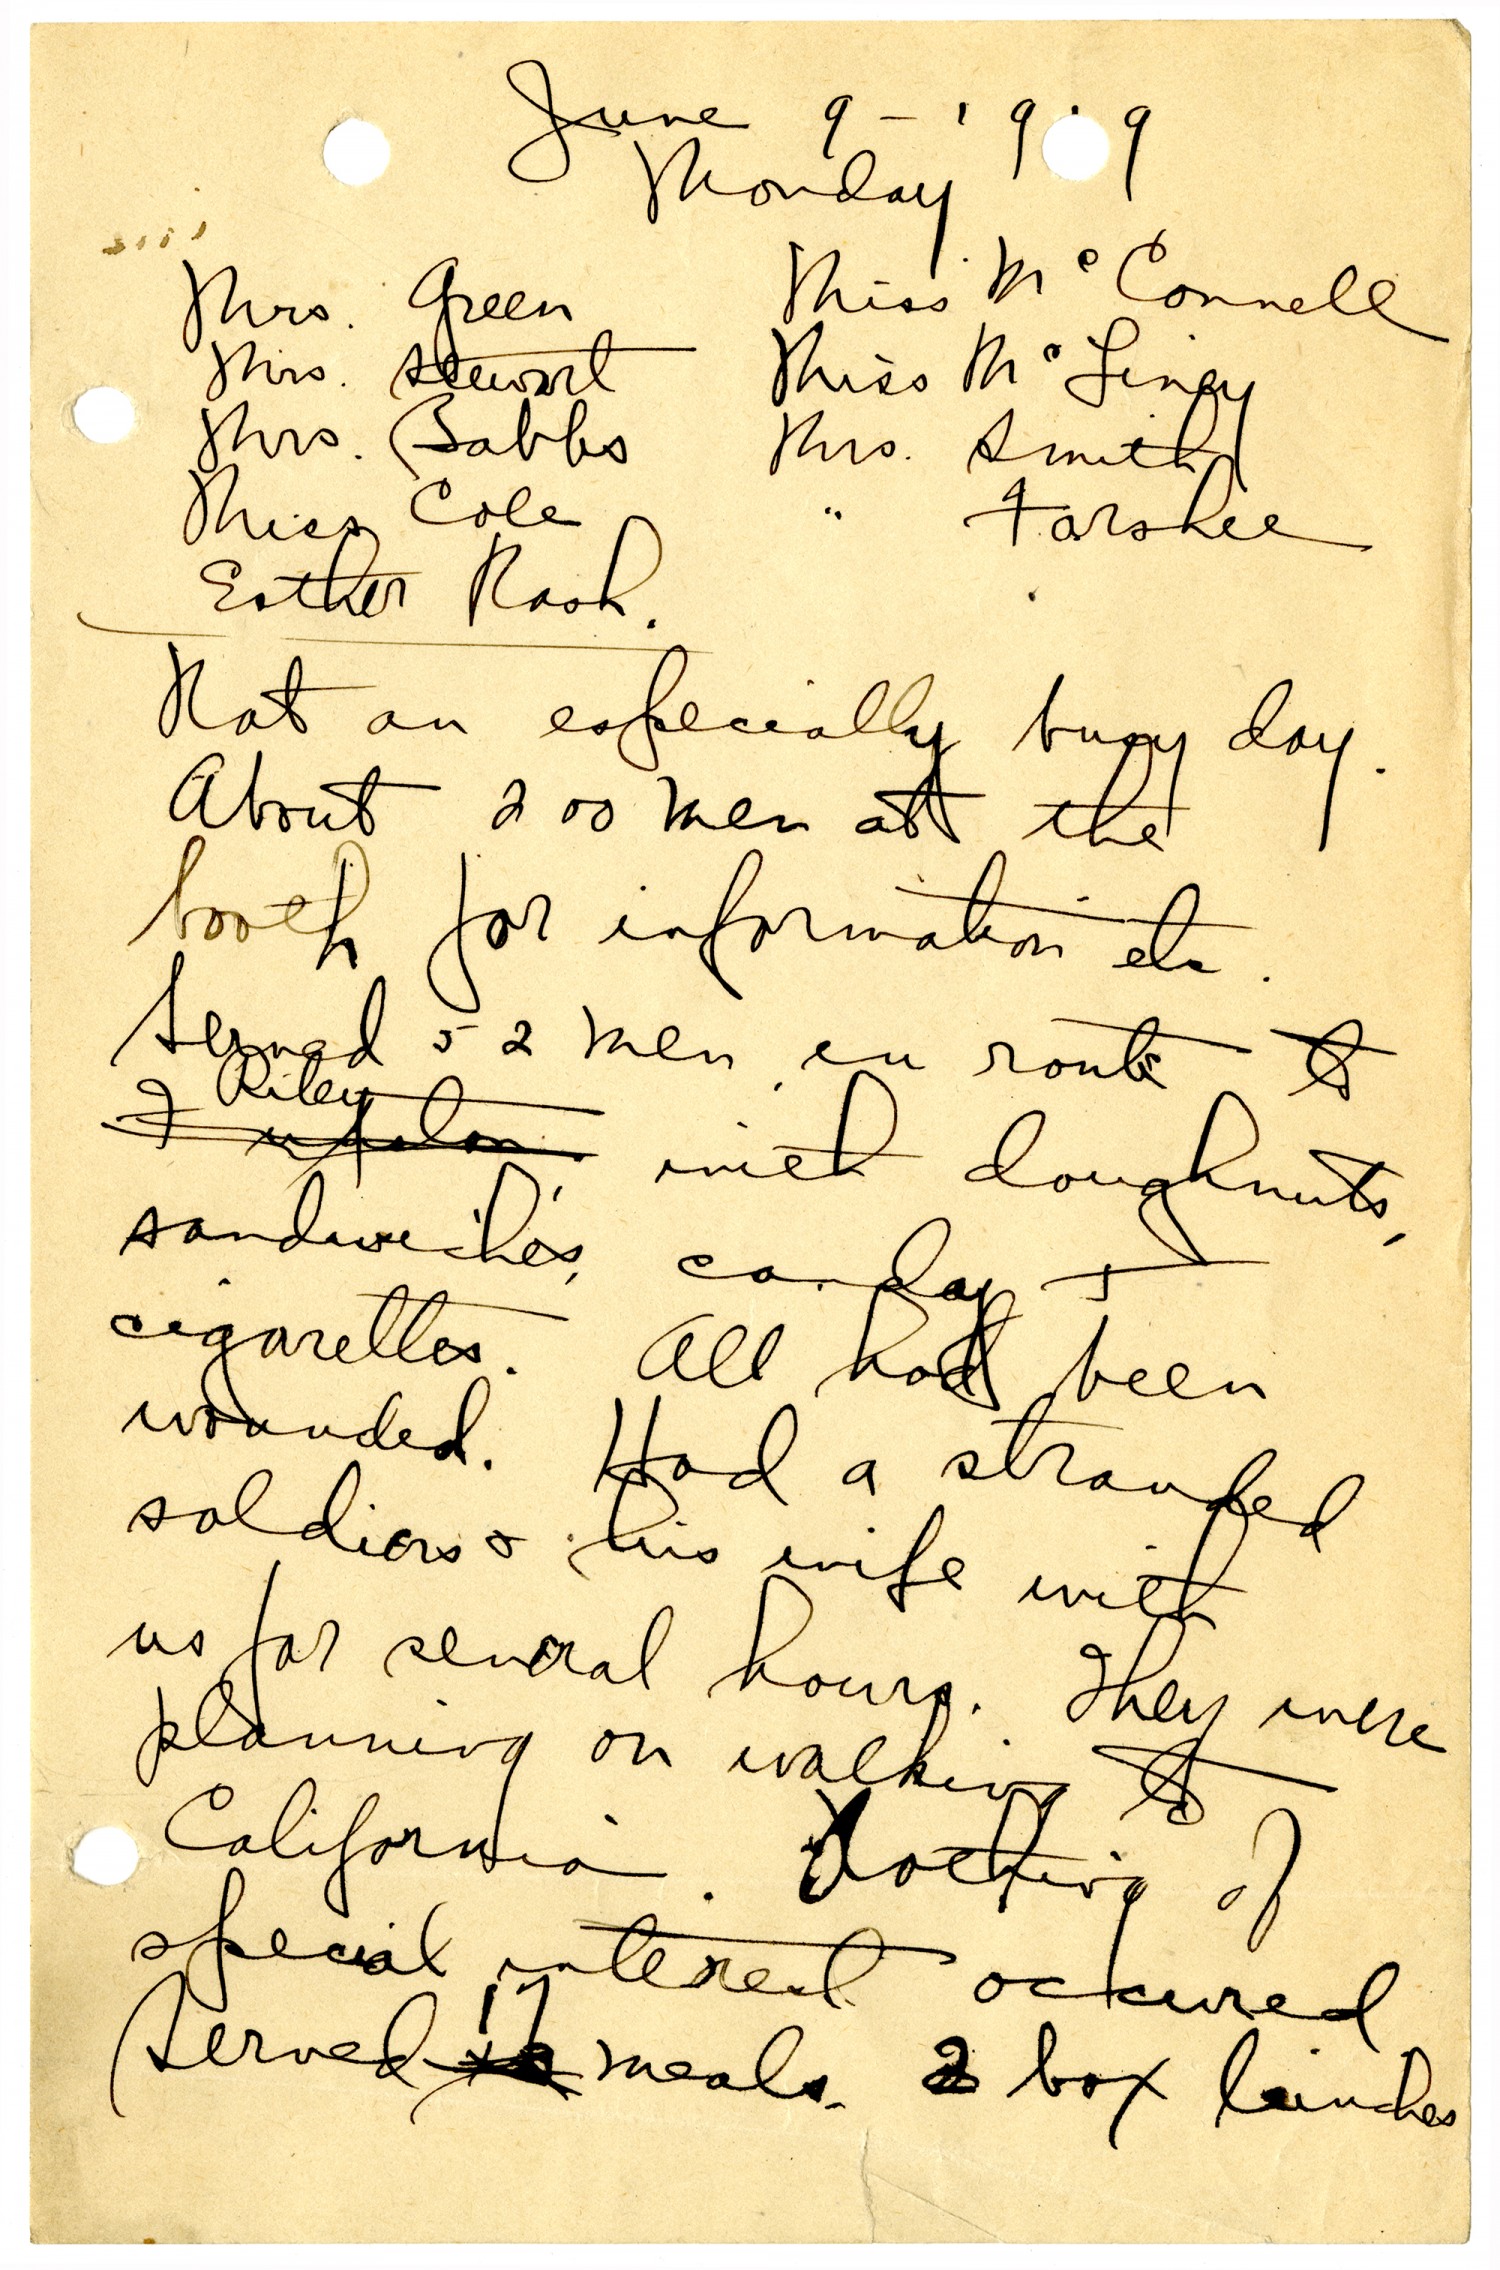 June 9 - 1919
Monday
Mrs. Green Miss McConnell
Mrs. Stewart Miss McGiney
Mrs. Babbs Mrs. Smith
Miss Cole " Forshee
Esther Rash.
Not an especially busy day.
About 200 men at the
booth for information etc.
Served 52 men en route to
Riley
Funston with doughnuts,
sandwiches, canday +
cigarettes. All had been
wounded. Had a stranded
soldiers & his wife with
us for several hours. They were
planning on walking to
California. Nothing of
special interest occured
17
Served meals. 2 box lunches